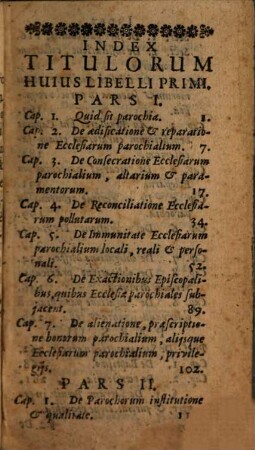 INDEX
TITULORUM
HUIUS LIBELLI PRIMI.
PARS I.
Cap. 1. Quid sit parochia. 1.
Cap. 2. De ædificatione & reparatio-
ne Ecclesiarum parochialium. 7.
Cap. 3. De Consecratione Ecclesiarum
parochialium, altarium & para-
mentorum. 17.
Cap. 4. De Reconciliatione Ecclesia-
rum pollutarum. 34.
Cap. 5. De Immunitate Ecclesiarum
parochialium locali, reali & perso-
nali. 52.
Cap. 6. De Exactionibus Episcopali-
bus, quibus Ecclesiæ parochiales sub-
jacent. 89.
Cap. 7. De alienatione, præscriptio-
ne bonorum parochialium, aliisque
Ecclesiarum parochialium, privile-
giis. 102.
PARS II.
Cap. 1. De Parochorum institutione
& qualitate.